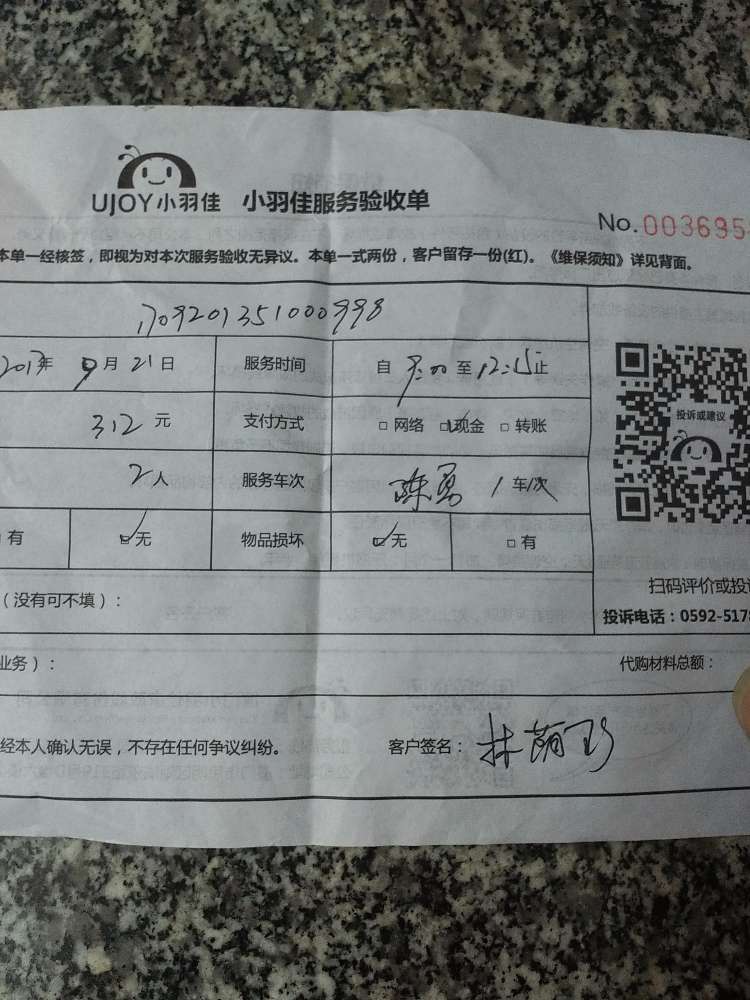 UJOY小羽佳 小羽佳服务验收单
No. 003695
本单一经核签，即视为对本次服务验收无异议。本单一式两份，客户留存一份(红)。《维保须知》详见背面。
1709201351000998
2017年 9月21日 服务时间 自 9:00 至 12:15止
312 元 支付方式 □ 网络 ☑现金 □ 转账
投诉或建议
2人 服务车次 陈勇 1 车/次
有 ☑无 物品损坏 ☑无 □ 有
扫码评价或投
（没有可不填）：
投诉电话：0592-5178
业务）： 代购材料总额：
经本人确认无误，不存在任何争议纠纷。 客户签名：林萌珍